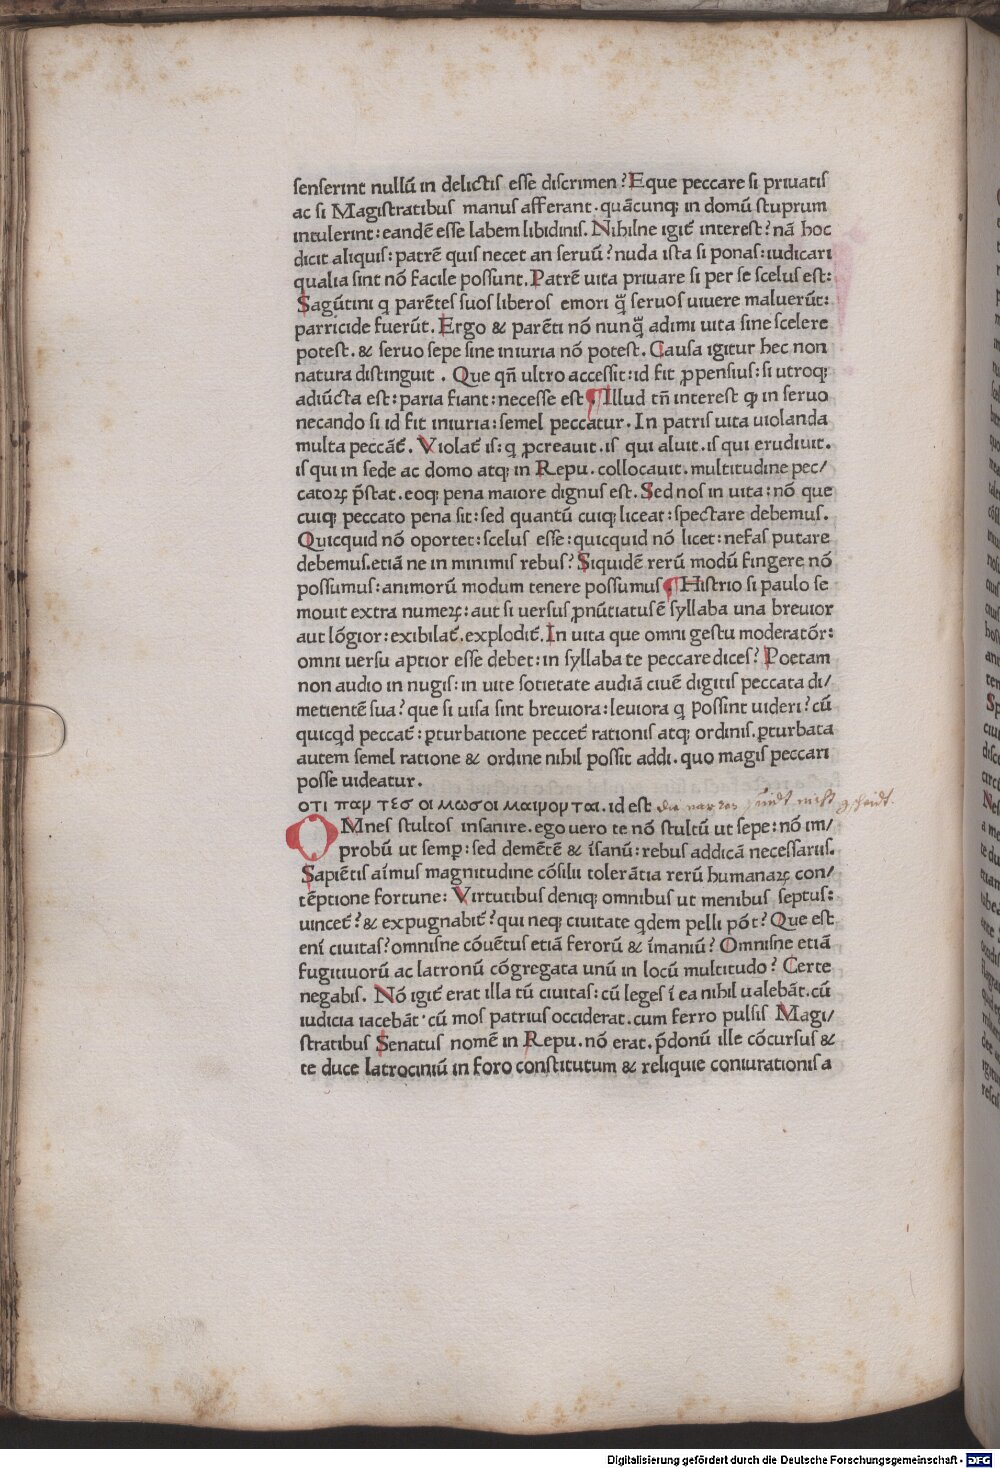 senserint nullũ in delictis esse discrimen? Eque peccare si priuatis
ac si Magistratibus manus afferant. quãcunqꝫ in domũ stuprum
intulerint: eandẽ esse labem libidinis. Nihilne igit᷑ interest? nã hoc
dicit aliquis: patrẽ quis necet an seruũ? nuda ista si ponas: iudicari
qualia sint nõ facile possunt. Patrẽ uita priuare si per se scelus est:
Sagũtini q parẽtes suos liberos emori q̃ seruos uiuere maluerũt:
parricide fuerũt. Ergo & parẽti nõ nunq̃ adimi uita sine scelere
potest. & seruo sepe sine iniuria nõ potest. Causa igitur hec non
natura distinguit. Que qñ ultro accessit: id fit ꝓpensius: si utroqꝫ
adiũcta est: paria fiant: necesse est. Illud tñ interest ꝙ in seruo
necando si id fit iniuria: semel peccatur. In patris uita uiolanda
multa peccãt᷑. Violat᷑ is: q ꝓcreauit. is qui aluit. is qui erudiuit.
is qui in sede ac domo atqꝫ in Repu. collocauit. multitudine pec/
catoꝝ p̃stat. eoqꝫ pena maiore dignus est. Sed nos in uita: nõ que
cuiqꝫ peccato pena sit: sed quantũ cuiqꝫ liceat: spectare debemus.
Quicquid nõ oportet: scelus esse: quicquid nõ licet: nefas putare
debemus. etiã ne in minimis rebus? Siquidẽ rerũ modũ fingere nõ
possumus: animorũ modum tenere possumus Histrio si paulo se
mouit extra numeꝝ: aut si uersus ꝓnũtiatus ẽ syllaba una breuior
aut lõgior: exibilat᷑. explodit᷑. In uita que omni gestu moderatõr:
omni uersu aptior esse debet: in syllaba te peccare dices? Poetam
non audio in nugis: in uite sotietate audiã ciuẽ digitis peccata di/
metientẽ sua? que si uisa sint breuiora: leuiora q possint uideri? cũ
quicqd peccat᷑: ꝑturbatione peccet᷑ rationis atqꝫ ordinis. ꝑturbata
autem semel ratione & ordine nihil possit addi. quo magis peccari
posse uideatur.
οτι παν τεσ οι μωσοι μαινον ται. id est die narren sindt nicht gscheidt.
OMnes stultos insanire. ego uero te nõ stultũ ut sepe: nõ im/
probũ ut semꝑ: sed demẽtẽ & ĩsanũ: rebus addicã necessariis.
Sapiẽtis aĩmus magnitudine cõsilii tolerãtia rerũ humanaꝝ con/
tẽptione fortune: Virtutibus deniqꝫ omnibus ut menibus septus:
uincet᷑? & expugnabit᷑? qui neqꝫ ciuitate qdem pelli põt? Que est
enĩ ciuitas? omnisne cõuẽtus etiã ferorũ & ĩmaniũ? Omnisne etiã
fugitiuorũ ac latronũ cõgregata unũ in locũ multitudo? Certe
negabis. Nõ igit᷑ erat illa tũ ciuitas: cũ leges ĩ ea nihil ualebãt. cũ
iudicia iacebãt. cũ mos patrius occiderat. cum ferro pulsis Magi/
stratibus Senatus nomẽ in Repu. nõ erat. p̃donũ ille cõcursus &
te duce latrociniũ in foro constitutum & reliquie coniurationis a
Digitalisierung gefördert durch die Deutsche Forschungsgemeinschaft - DFG